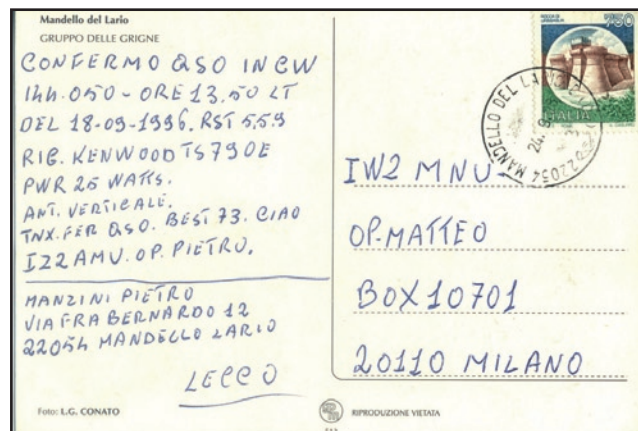 Mandello del Lario
GRUPPO DELLE GRIGNE
CONFERMO QSO IN CW
144.050 - ORE 13.50 LT
DEL 18-09-1996. RST 559
RIG. KENWOOD TS790E
PWR 25 WATTS.
ANT. VERTICALE.
TNX. FER QSO. BEST 73. CIAO
IZ2AMU. OP. PIETRO.
MANZINI PIETRO
VIA FRA BERNARDO 12
22054 MANDELLO LARIO
LECCO
Foto: L.G. CONATO
750
ITALIA
22054 MANDELLO DEL LARIO
IW2 MNU
OP. MATTEO
BOX 10701
20110 MILANO
RIPRODUZIONE VIETATA